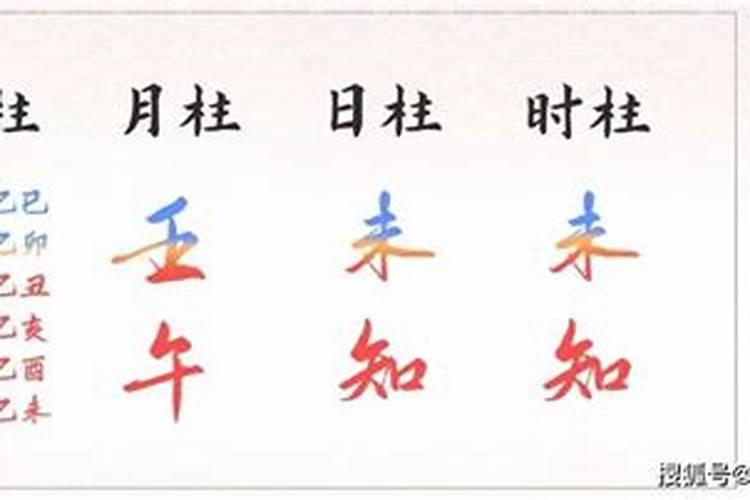 柱 月柱 日柱 时柱
乙巳
乙卯
乙丑
乙亥
乙酉
乙未
壬 未 未
午 知 知
搜狐号@